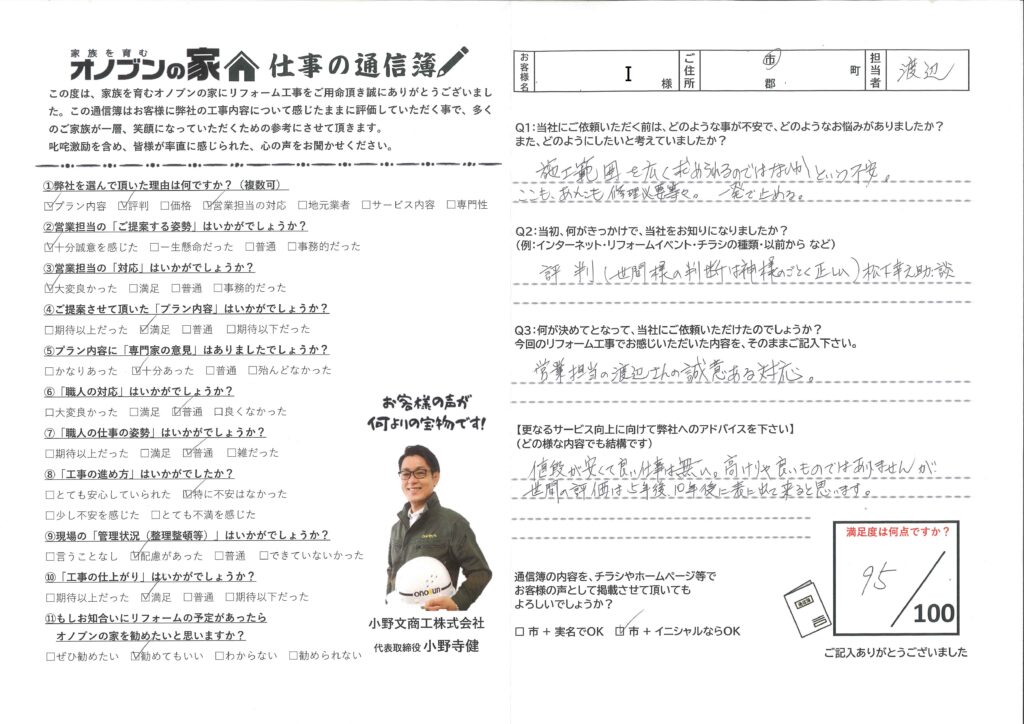 家族を育む
オノブンの家 仕事の通信簿
この度は、家族を育むオノブンの家にリフォーム工事をご用命頂き誠にありがとうございまし
た。この通信簿はお客様に弊社の工事内容について感じたままに評価していただく事で、多く
のご家族が一層、笑顔になっていただくための参考にさせて頂きます。
叱咤激励を含め、皆様が率直に感じられた、心の声をお聞かせください。
①弊社を選んで頂いた理由は何ですか？（複数可）
☑プラン内容 ☑評判 □価格 ☑営業担当の対応 □地元業者 □サービス内容 □専門性
②営業担当の「ご提案する姿勢」はいかがでしょうか？
☑十分誠意を感じた □一生懸命だった □普通 □事務的だった
③営業担当の「対応」はいかがでしょうか？
☑大変良かった □満足 □普通 □事務的だった
④ご提案させて頂いた「プラン内容」はいかがでしょうか？
□期待以上だった ☑満足 □普通 □期待以下だった
⑤プラン内容に「専門家の意見」はありましたでしょうか？
□かなりあった ☑十分あった □普通 □殆んどなかった
⑥「職人の対応」はいかがでしょうか？
□大変良かった □満足 ☑普通 □良くなかった
⑦「職人の仕事の姿勢」はいかがでしょうか？
□期待以上だった □満足 ☑普通 □雑だった
⑧「工事の進め方」はいかがでしたか？
□とても安心していられた ☑特に不安はなかった
□少し不安を感じた □とても不満を感じた
⑨現場の「管理状況（整理整頓等）」はいかがでしょうか？
□言うことなし ☑配慮があった □普通 □できていないかった
⑩「工事の仕上がり」はいかがでしょうか？
□期待以上だった ☑満足 □普通 □期待以下だった
⑪もしお知合いにリフォームの予定があったら
オノブンの家を勧めたいと思いますか？
□ぜひ勧めたい ☑勧めてもいい □わからない □勧められない
お客様の声が
何よりの宝物です!
onobun
小野文商工株式会社
代表取締役 小野寺健
お客様名 I 様 ご住所 市 郡 町 担当者 渡辺
Q1：当社にご依頼いただく前は、どのような事が不安で、どのようなお悩みがありましたか？
また、どのようにしたいと考えていましたか？
施工範囲を広く求められるのではないかという不安。
ここも、あそこも修理必要等々。 一発で止める。
Q2：当初、何がきっかけで、当社をお知りになりましたか？
（例：インターネット・リフォームイベント・チラシの種類・以前から など）
評判（世間様の判断は神様のごとく正しい）松下幸之助談
Q3：何が決めてとなって、当社にご依頼いただけたのでしょうか？
今回のリフォーム工事でお感じいただいた内容を、そのままご記入下さい。
営業担当の渡辺さんの誠意ある対応。
【更なるサービス向上に向けて弊社へのアドバイスを下さい】
（どの様な内容でも結構です）
値段が安くて良い仕事は無い。高けりゃ良いものではありませんが
世間の評価は5年後、10年後に表に出て来ると思います。
満足度は何点ですか？
95／100
通信簿の内容を、チラシやホームページ等で
お客様の声として掲載させて頂いても
よろしいでしょうか？
□ 市 + 実名でOK ☑ 市 + イニシャルならOK
通信簿
ご記入ありがとうございました